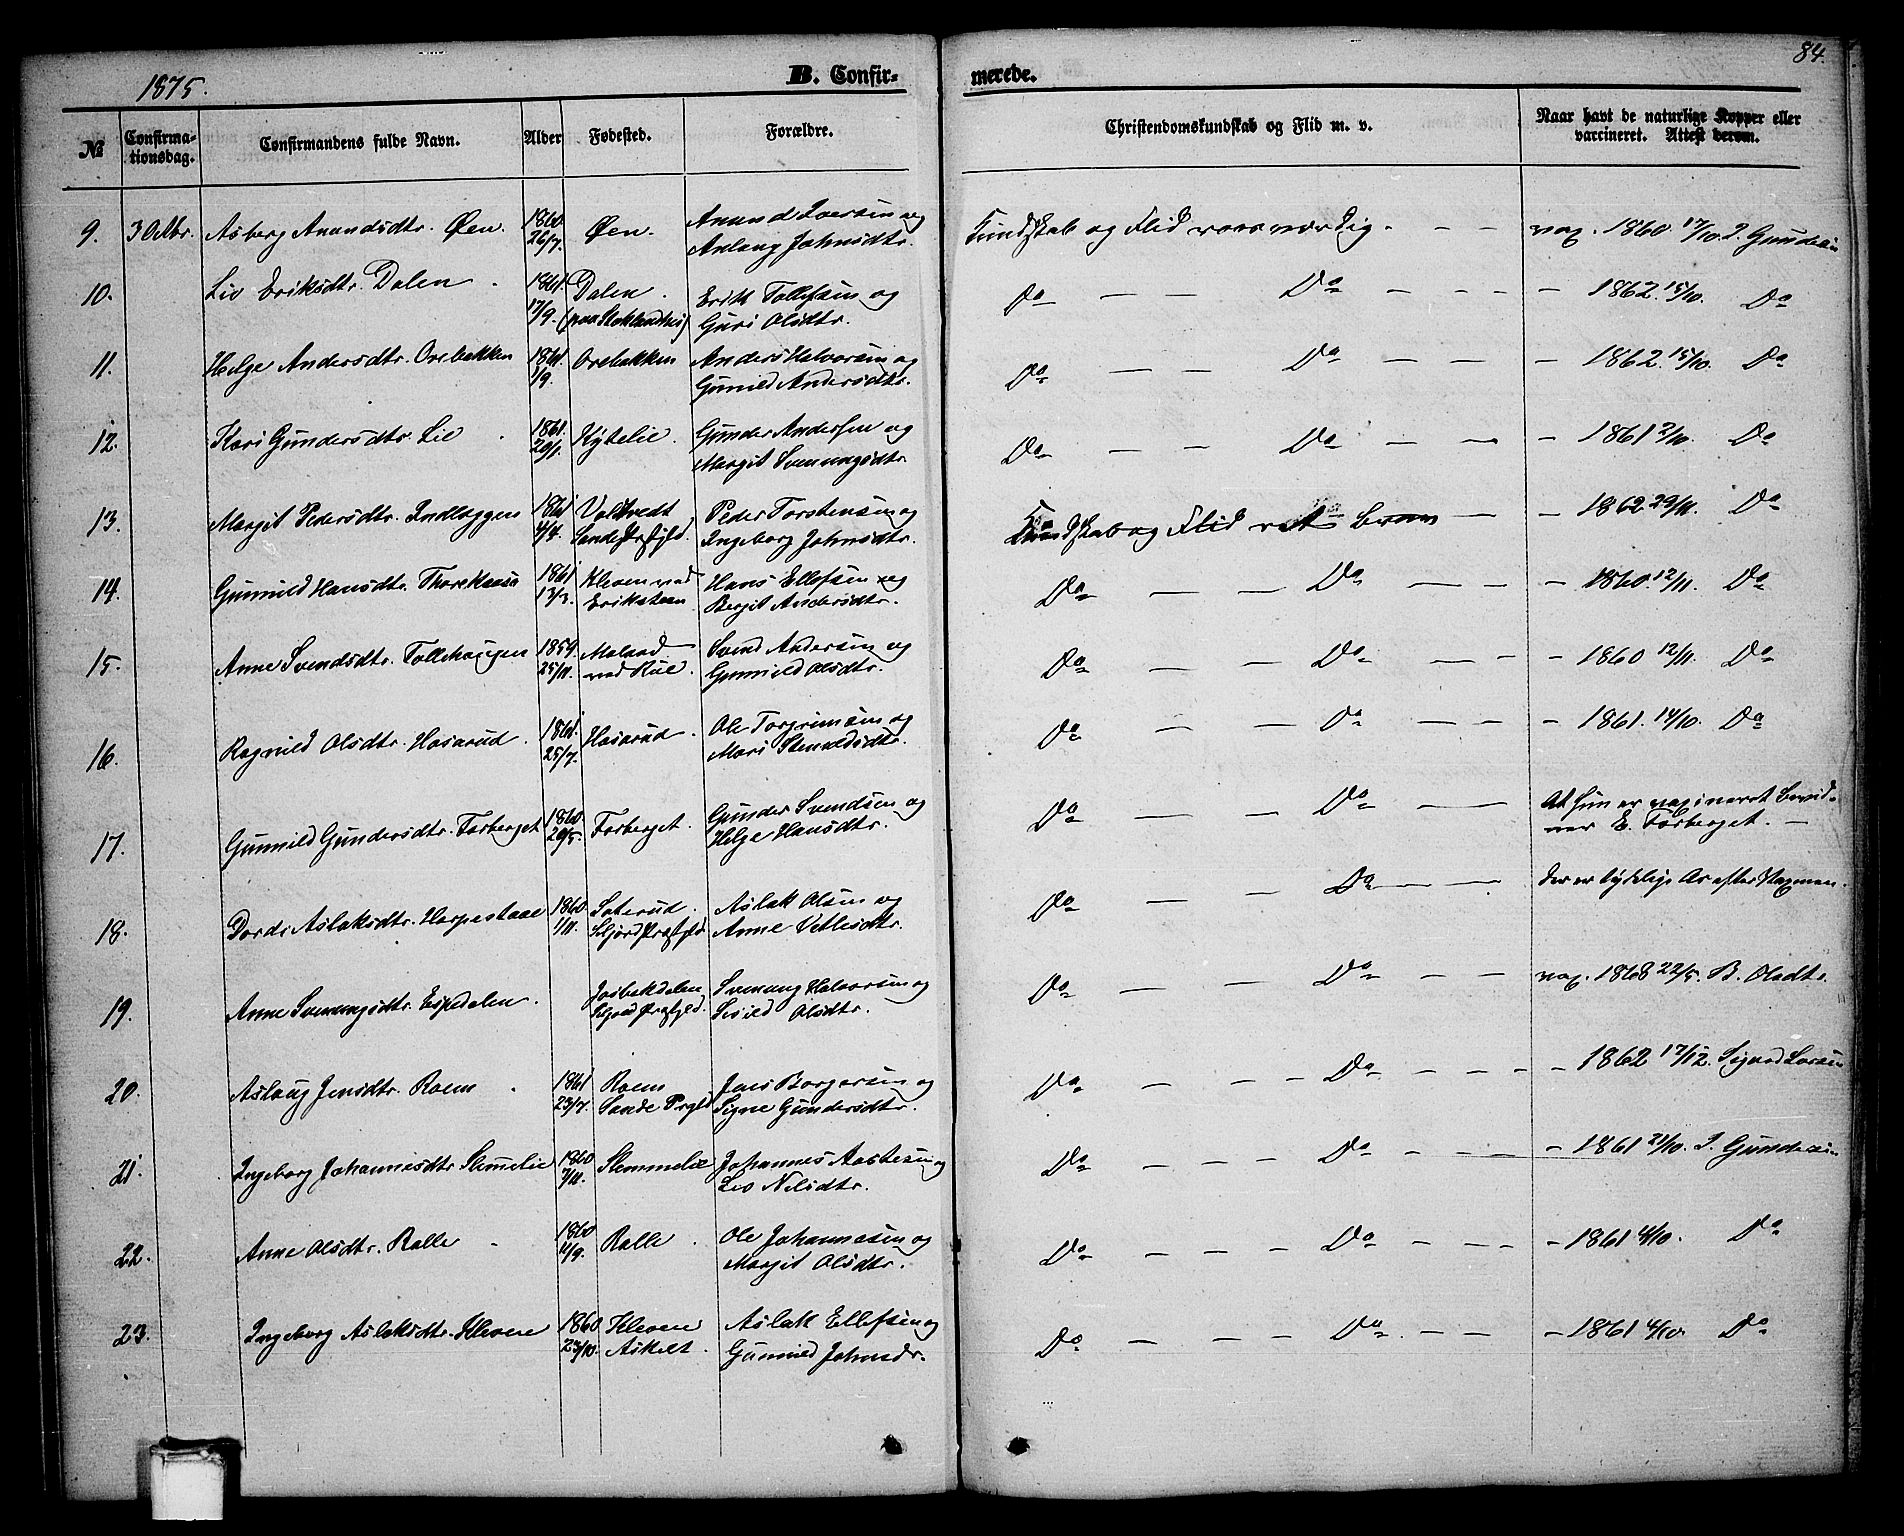 84.
1875.
B. Confir- merede.
No Confirma- tionsdag. Confirmandens fulde Navn. Alder Fødested. Forældre. Christendomskundskab og Flid m. v. Naar havt de naturlige Kopper eller vaccineret. Attest derom.
9. 30 Asberg Anundsdtr. Øen. 1860 Øen. Anund Iversen og Kundskab og Flid roosværdig. — — vax. 1860 17/10. J. Gundersen
26/7. Anlaug Johnsdtr.
10. Liv Eriksdtr. Dalen. 1861 Dalen. Erik Tollefsen og Do — — Do — — — 1862. 15/10. Do
17/9. Guri Olsdtr.
11. Helge Andersdtr. Orebakken 1861. Orebakken Anders Halvorsen og Do — — Do — — — 1862. 15/10. Do
1/9. Gunild Andersdtr.
12. Kari Gundersdtr. Lie 1861. Kytelie. Gunder Andersen og Do — — Do — — — 1861 2/10. Do
29/1. Margit Svenungsdtr.
13. Margit Pedersdtr. 1861 Peder Torstensen og Kundskab og Flid — — 1862 29/11. Do
4/4. Ingeborg Johnsdtr.
14. Gunnild Hansdtr. 1861 Kleven ved Hans Ellefsen og Do — — Do — — — 1860. 12/11. Do
13/3. Eriksteen Bergit Andersdtr.
15. Anne Svendsdtr. Tollehaugen 1859. ved Svend Andersen og Do — — Do — — — 1860 12/11. Do
25/11. Gunnild Olsdtr.
16. Ragnild Olsdtr. Hasarud. 1861. Hasarud. Ole Torgrimsen og Do — — Do — — — 1861. 14/10. Do
25/7. Mari
17. Gunnild Gundersdtr. Forberget 1860 Forberget. Gunder Svendsen og Do — — Do — — At hun er vaxineret bevid-
Helge Hansdtr. ner E. Forberget. —
18. Dordi Aslaksdtr. 1860. Aslak Olsen og Do — Do — — Der er tydelige Ar efter
1/11. Anne Vetlesdtr.
19. Anne Svenungsdtr. Espedalen. Svenung Halvorsen og Do — — Do — — vax. 1868 22/5. B. Olsdtr.
Olsdtr.
20. Aslaug Jensdtr. Roem. 1861 Roem Jens Borgersen og Do — — — Do — — — — 1862 17/12.
23/7. Sande Signe Gundersdtr.
21. Ingeborg Johannesdtr. Slemelie 1860 Slemmelie Johannes og Do — — — Do — — — — 1861 21/10. J. Gundersen
7/11. Liv Nilsdtr.
22. Anne Olsdtr. Ralle 1860 Ralle. Ole Johannesen og Do — — — Do — — — — 1861 4/10. Do
Margit Olsdtr.
23. Ingeborg Aslaksdtr. Klevene 1860 Klevene Aslak Ellefsen og Do — — — Do — — — 1861 4/10. Do
23/10. Askilt. Gunnild Johnsdr.